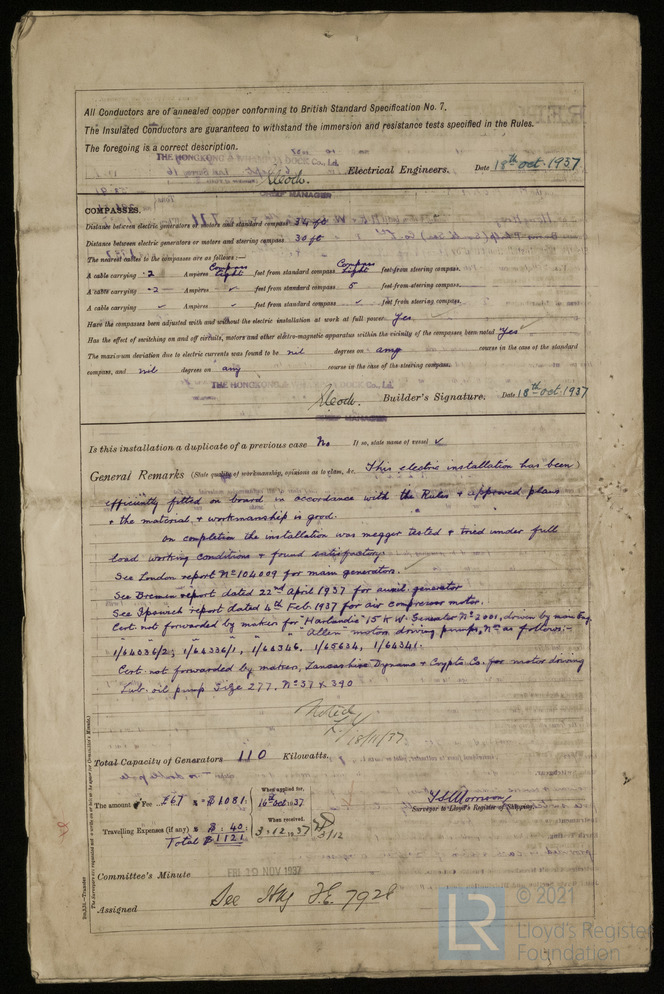 All Conductors are of annealed copper conforming to British Standard Specification No. 7.
The Insulated Conductors are guaranteed to withstand the immersion and resistance tests specified in the Rules.
The foregoing is a correct description.
THE HONGKONG & DOCK Co., Ld.
Electrical Engineers. Date 18th Oct. 1937
CHIEF MANAGER
COMPASSES.
Distance between electric generators or motors and standard compass 34 ft
Distance between electric generators or motors and steering compass 30 ft
The nearest cables to the compasses are as follows:—
A cable carrying .2 Ampères Compass light feet from standard compass Compass light feet from steering compass.
A cable carrying .2 Ampères ✓ feet from standard compass 5 feet from steering compass.
A cable carrying ✓ Ampères ✓ feet from standard compass ✓ feet from steering compass.
Have the compasses been adjusted with and without the electric installation at work at full power. Yes
Has the effect of switching on and off circuits, motors and other electro-magnetic apparatus within the vicinity of the compasses been noted Yes
The maximum deviation due to electric currents was found to be nil degrees on any course in the case of the standard
compass, and nil degrees on any course in the case of the steering compass.
THE HONGKONG & DOCK Co., Ld.
Builder's Signature. Date 18th Oct. 1937
CHIEF MANAGER
Is this installation a duplicate of a previous case No If so, state name of vessel ✓
General Remarks (State quality of workmanship, opinions as to class, &c. This electric installation has been
efficiently fitted on board in accordance with the Rules & approved plans
& the material & workmanship is good.
On completion the installation was megger tested & tried under full
load working conditions & found satisfactory.
See London report No 104009 for main generators.
See Bremen report dated 22nd April 1937 for auxil. generator
See Ipswich report dated 4th Feb. 1937 for air compressor motor.
Cert. not forwarded by makers for "Harlandic" 15 K.W. Generator No 2001, driven by main Eng.
" " " " " "Allen" motors driving pumps, Nos as follows:-
1/64036/2, 1/64336/1, 1/64346, 1/65634, 1/64341.
Cert. not forwarded by makers, Lancashire Dynamo & Crypto Co. for motor driving
Lub. oil pump Size 277, No 37 x 390
Noted
18/11/37
Total Capacity of Generators 110 Kilowatts.
The amount of Fee £67 = $1081: When applied for, 16th Oct 1937
Surveyor to Lloyd's Register of Shipping.
Travelling Expenses (if any) $ : 40 : When received, 3.12.1937 3/12
Total $1121
Committee's Minute FRI 19 NOV 1937
Assigned See Hkg F.E. 7928
© 2021
LR
Lloyd's Register
Foundation